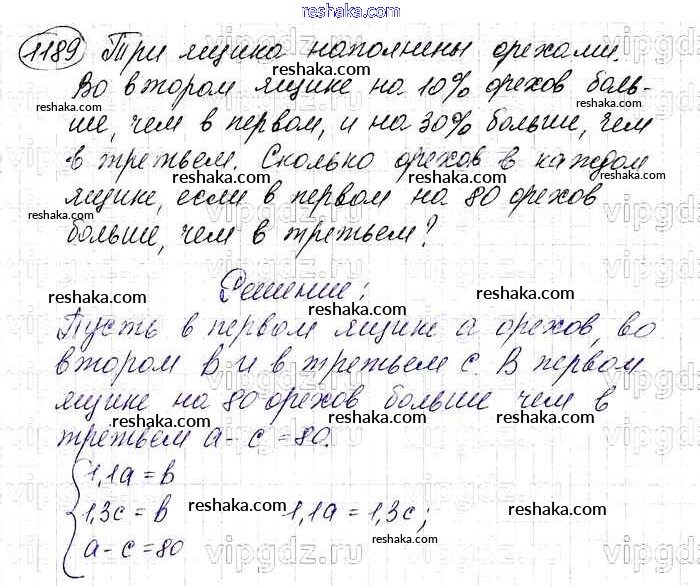 reshaka.com
1189 Три ящика наполнены орехами.
reshaka.com
Во втором ящике на 10% орехов боль-
reshaka.com reshaka.com
ше, чем в первом, и на 30% больше, чем
в третьем. Сколько орехов в каждом
reshaka.com reshaka.com
ящике, если в первом на 80 орехов
reshaka.com reshaka.com
больше, чем в третьем?
vipgdz.ru vipgdz.ru vipgdz.ru
reshaka.com
Решение:
reshaka.com reshaka.com reshaka.com
Пусть в первом ящике a орехов, во
reshaka.com
втором b и в третьем c. В первом
reshaka.com reshaka.com
ящике на 80 орехов больше чем в
reshaka.com reshaka.com
третьем a - c = 80.
1,1a = b
1,3c = b 1,1a = 1,3c;
reshaka.com reshaka.com
a - c = 80
reshaka.com
vipgdz.ru vipgdz.ru vipgdz.ru